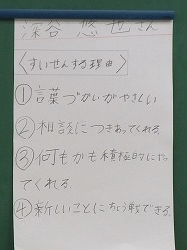 深谷 悠也さん
〈すいせんする理由〉
①言葉づかいがやさしい
②相談につきあってくれる。
③何もかも積極的にやっ
てくれる。
④新しいことにちょう戦できる。